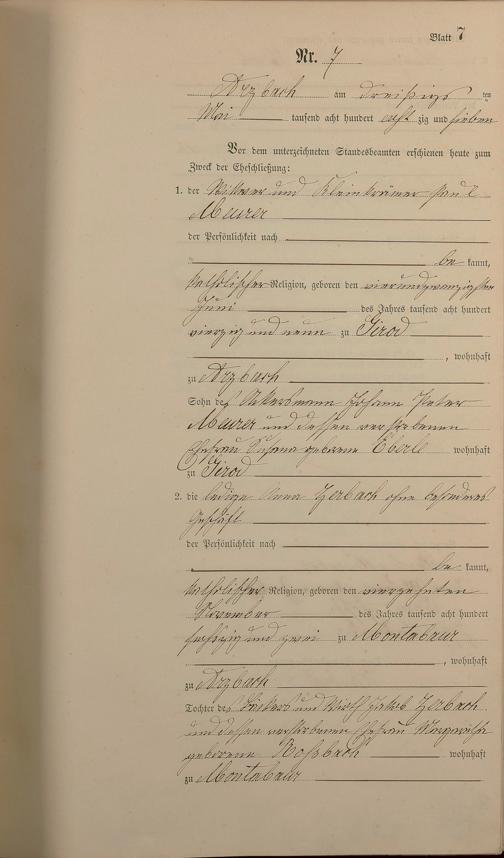 Blatt 7
Nr. 7
Arzbach am dreißigs ten
Mai tausend acht hundert acht zig und sieben
Vor dem unterzeichneten Standesbeamten erschienen heute zum
Zweck der Eheschließung:
1. der Wittwer und Kleinkrämer Paul
Meurer
der Persönlichkeit nach
be kannt,
katholischer Religion, geboren den vierundzwanzigsten
Juni des Jahres tausend acht hundert
vierzig und neun zu Girod
, wohnhaft
zu Arzbach
Sohn des Ackersmann Johann Peter
Meurer und dessen verstorbenen
Ehefrau Susana geborene Eberl wohnhaft
zu Girod
2. die ledige Anna Zerbach ohne besonderes
Geschäft
der Persönlichkeit nach
be kannt,
katholischer Religion, geboren den vierzehnten
November des Jahres tausend acht hundert
sechszig und zwei zu Montabaur
, wohnhaft
zu Arzbach
Tochter des Bäckers und Wirth Jakob Zerbach
und dessen verstorbenen Ehefrau
geborene Roßbach wohnhaft
zu Montabaur